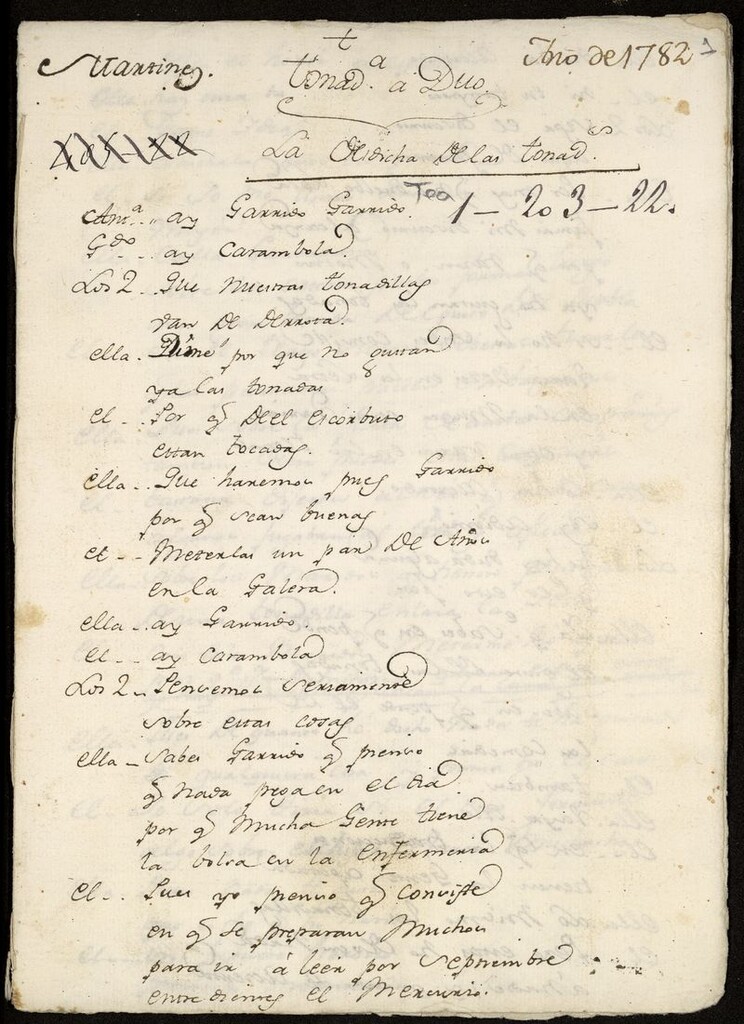 t
Martinez.
tonad.ª a Duo.
Año de 1782
1
La Desdicha de las tonad.s
Tea 1-203-22.
Ant.ª .. ay Garrido Garrido.
G.do .. ay Carambola.
Los 2.. Que nuestras tonadillas
van de derrota.
ella. Dime por que no gustan
ya las tonadas
el .. Por q.e deel escorbuto
estan tocadas.
ella.. Que haremos pues Garrido
por q.e sean buenas
el .. Meterlas un par de años
en la Galera.
ella.. ay Garrido.
el .. ay Carambola
Los 2.. Pensemos seriamente
sobre estas cosas
ella.. Sabes Garrido q.e pienso
q.e nada pega en el dia
por q.e mucha Gente tiene
la bolsa en la enfermeria
el.. Pues yo pienso q.e consiste
en q.e se preparan muchos
para ir á leer por Septiembre
entre dientes el Mercurio.